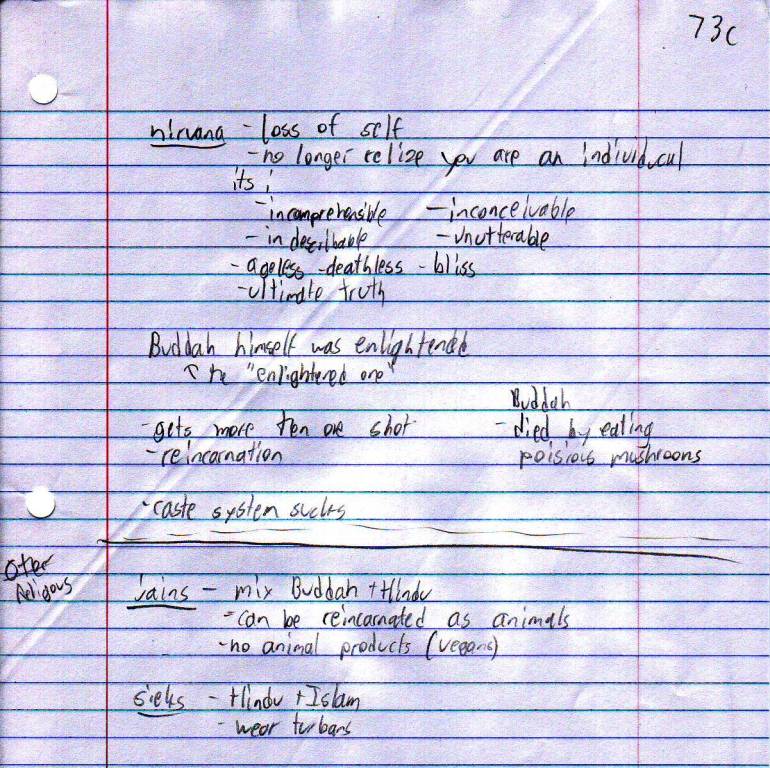 73c
nirvana - loss of self
- no longer relize you are an individucal
its ;
- incomprehensible - inconceivable
- indescribable - unutterable
- ageless - deathless - bliss
- ultimate truth
Buddah himself was enlightened
↑ the "enlightered one"
Buddah
- gets more ten one shot - died by eating
- reincarnation poisious mushrooms
- caste system sucks
Other
Religous
Jains - mix Buddah + Hindu
- can be reincarnated as animals
- no animal products (vegans)
sieks - Hindu + Islam
- wear turbans